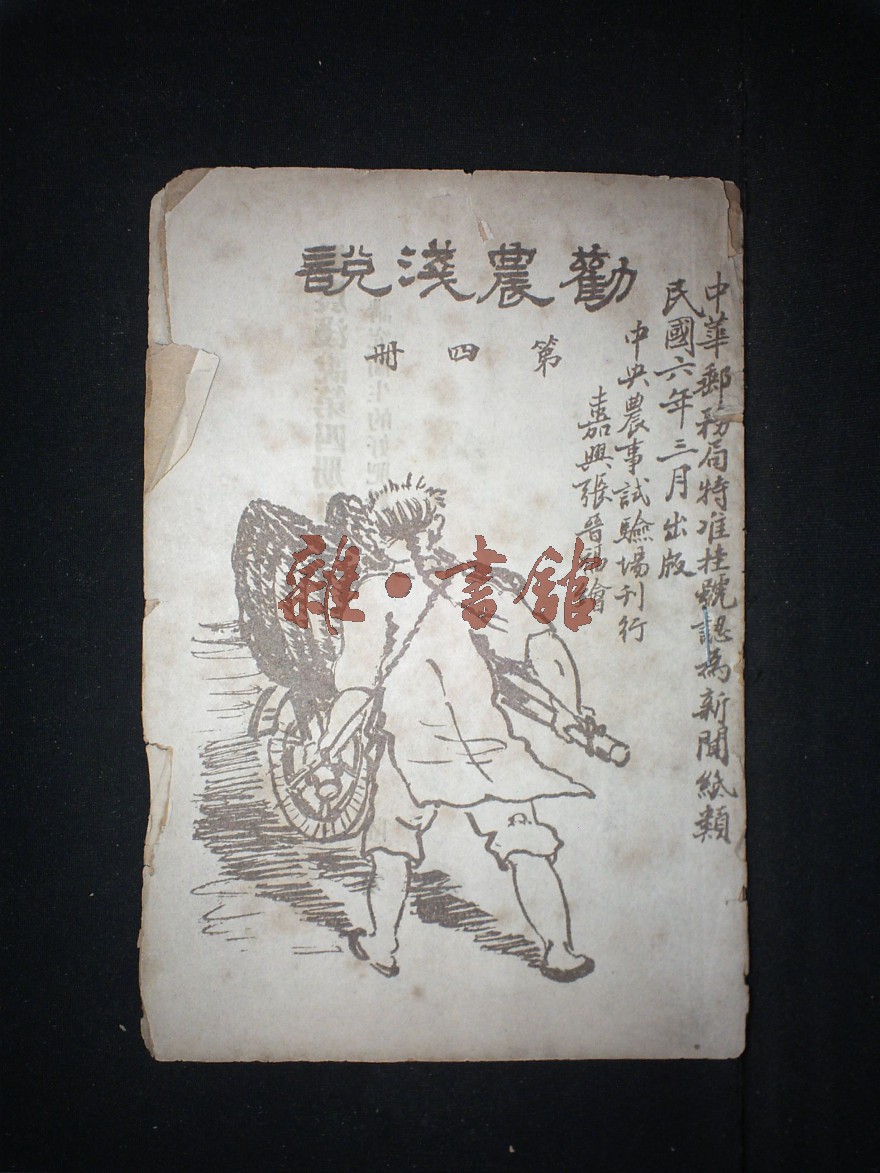 勸農淺說
第四冊
中華郵務局特准挂號認為新聞紙類
民國六年三月出版
中央農事試驗場刊行
嘉興張晉福繪
雜·書館